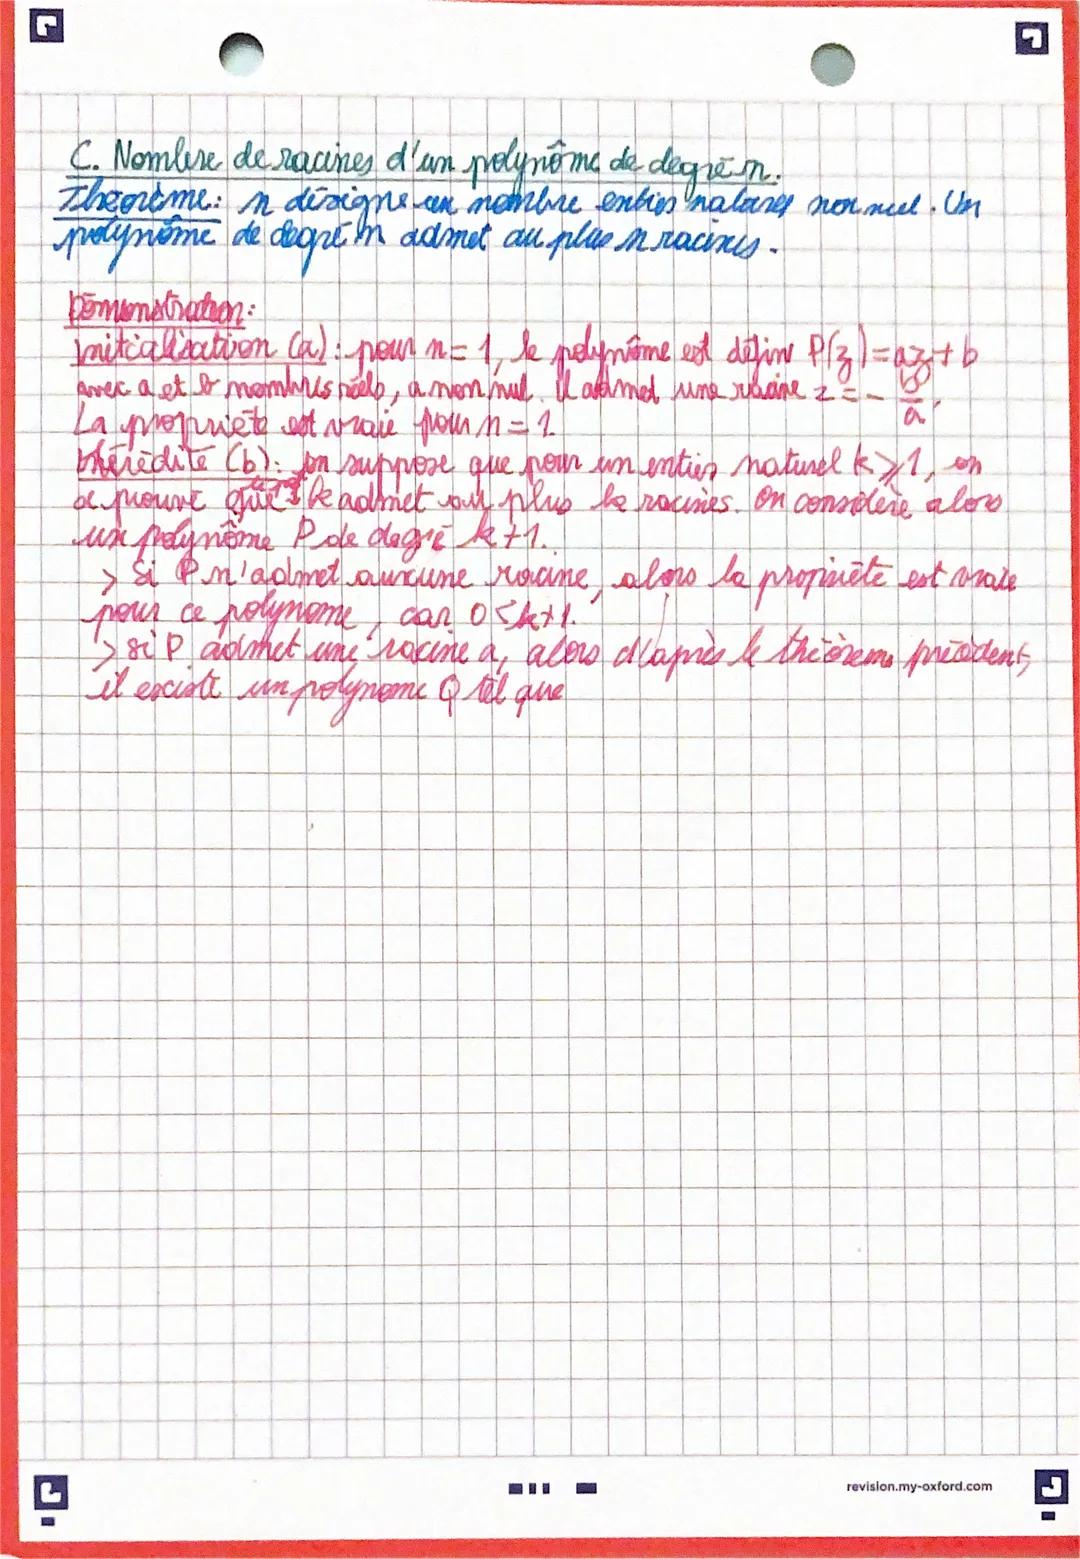 C. Nombre de racines d'un polynôme de degré n.
Théorème: n désigne un nombre entier naturel non nul. Un
polynôme de degré n admet au plus n racines.
Démonstration:
initialisation (a): pour n = 1, le polynôme est défini P(z) = az + b
avec a et b nombres réels, a non nul. Il admet une racine z = - b/a,
La propriété est vraie pour n = 1
hérédité (b): on suppose que pour un entier naturel k ⩾ 1, on
a prouvé que k admet au plus k racines. On considère alors
un polynôme P de degré k+1.
> Si P n'admet aucune racine, alors la propriété est vraie
pour ce polynome, car 0 ≤ k+1.
> si P admet une racine a, alors d'après le théorème précédent,
il existe un polynome Q tel que
revision.my-oxford.com